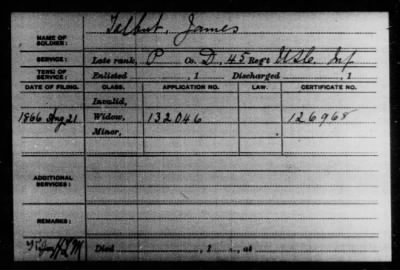 NAME OF SOLDIER: Talbut, James
SERVICE: Late rank, P Co. D, 45 Reg't U.S.C. Inf
TERM OF SERVICE: Enlisted , 1 Discharged , 1
DATE OF FILING. CLASS. APPLICATION NO. LAW. CERTIFICATE NO.
Invalid,
1866 Aug 21 Widow, 132046 126968
Minor,
ADDITIONAL SERVICES:
REMARKS:
Died , 1 , at